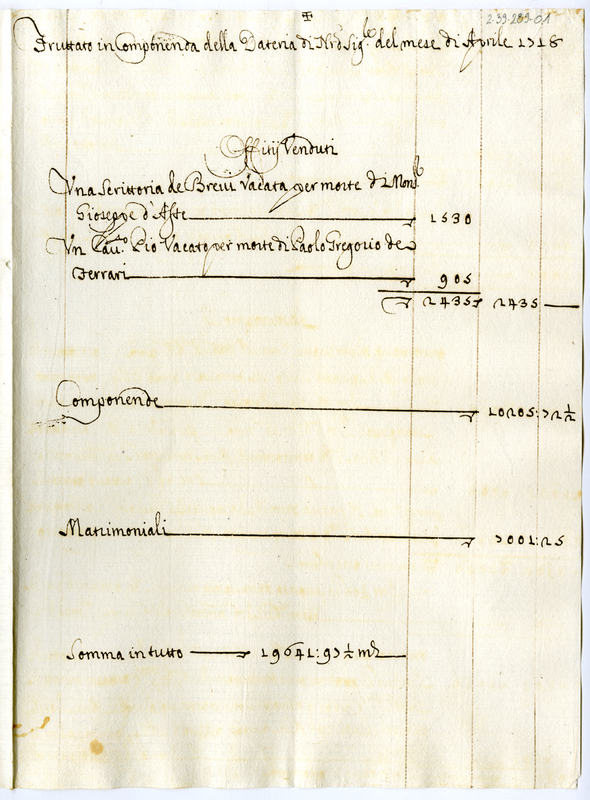 ✠
2-39-289-01
Fruttato in Componenda della Dateria di Nrõ Sig.re del mese di Aprile 1718
Offitij Venduti
Una Scrittoria de Brevi Vacata per morte di Mons.r
Gioseppe d'Aste 1530
Un Cau.o Pio Vacato per morte di Paolo Gregorio de
Ferrari 905
2435 2435
Componende 10205:72½
Matrimoniali 7001:25
Somma in tutto 19641:97½ m.ta